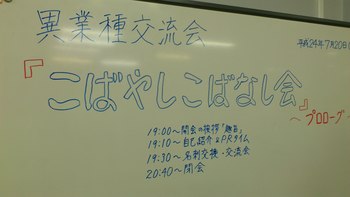 異業種交流会
平成24年7月20日
『こばやしこばなし会』
～プロローグ
19:00～開会の挨拶「趣旨」
19:10～自己紹介&PRタイム
19:30～名刺交換・交流会
20:40～閉会